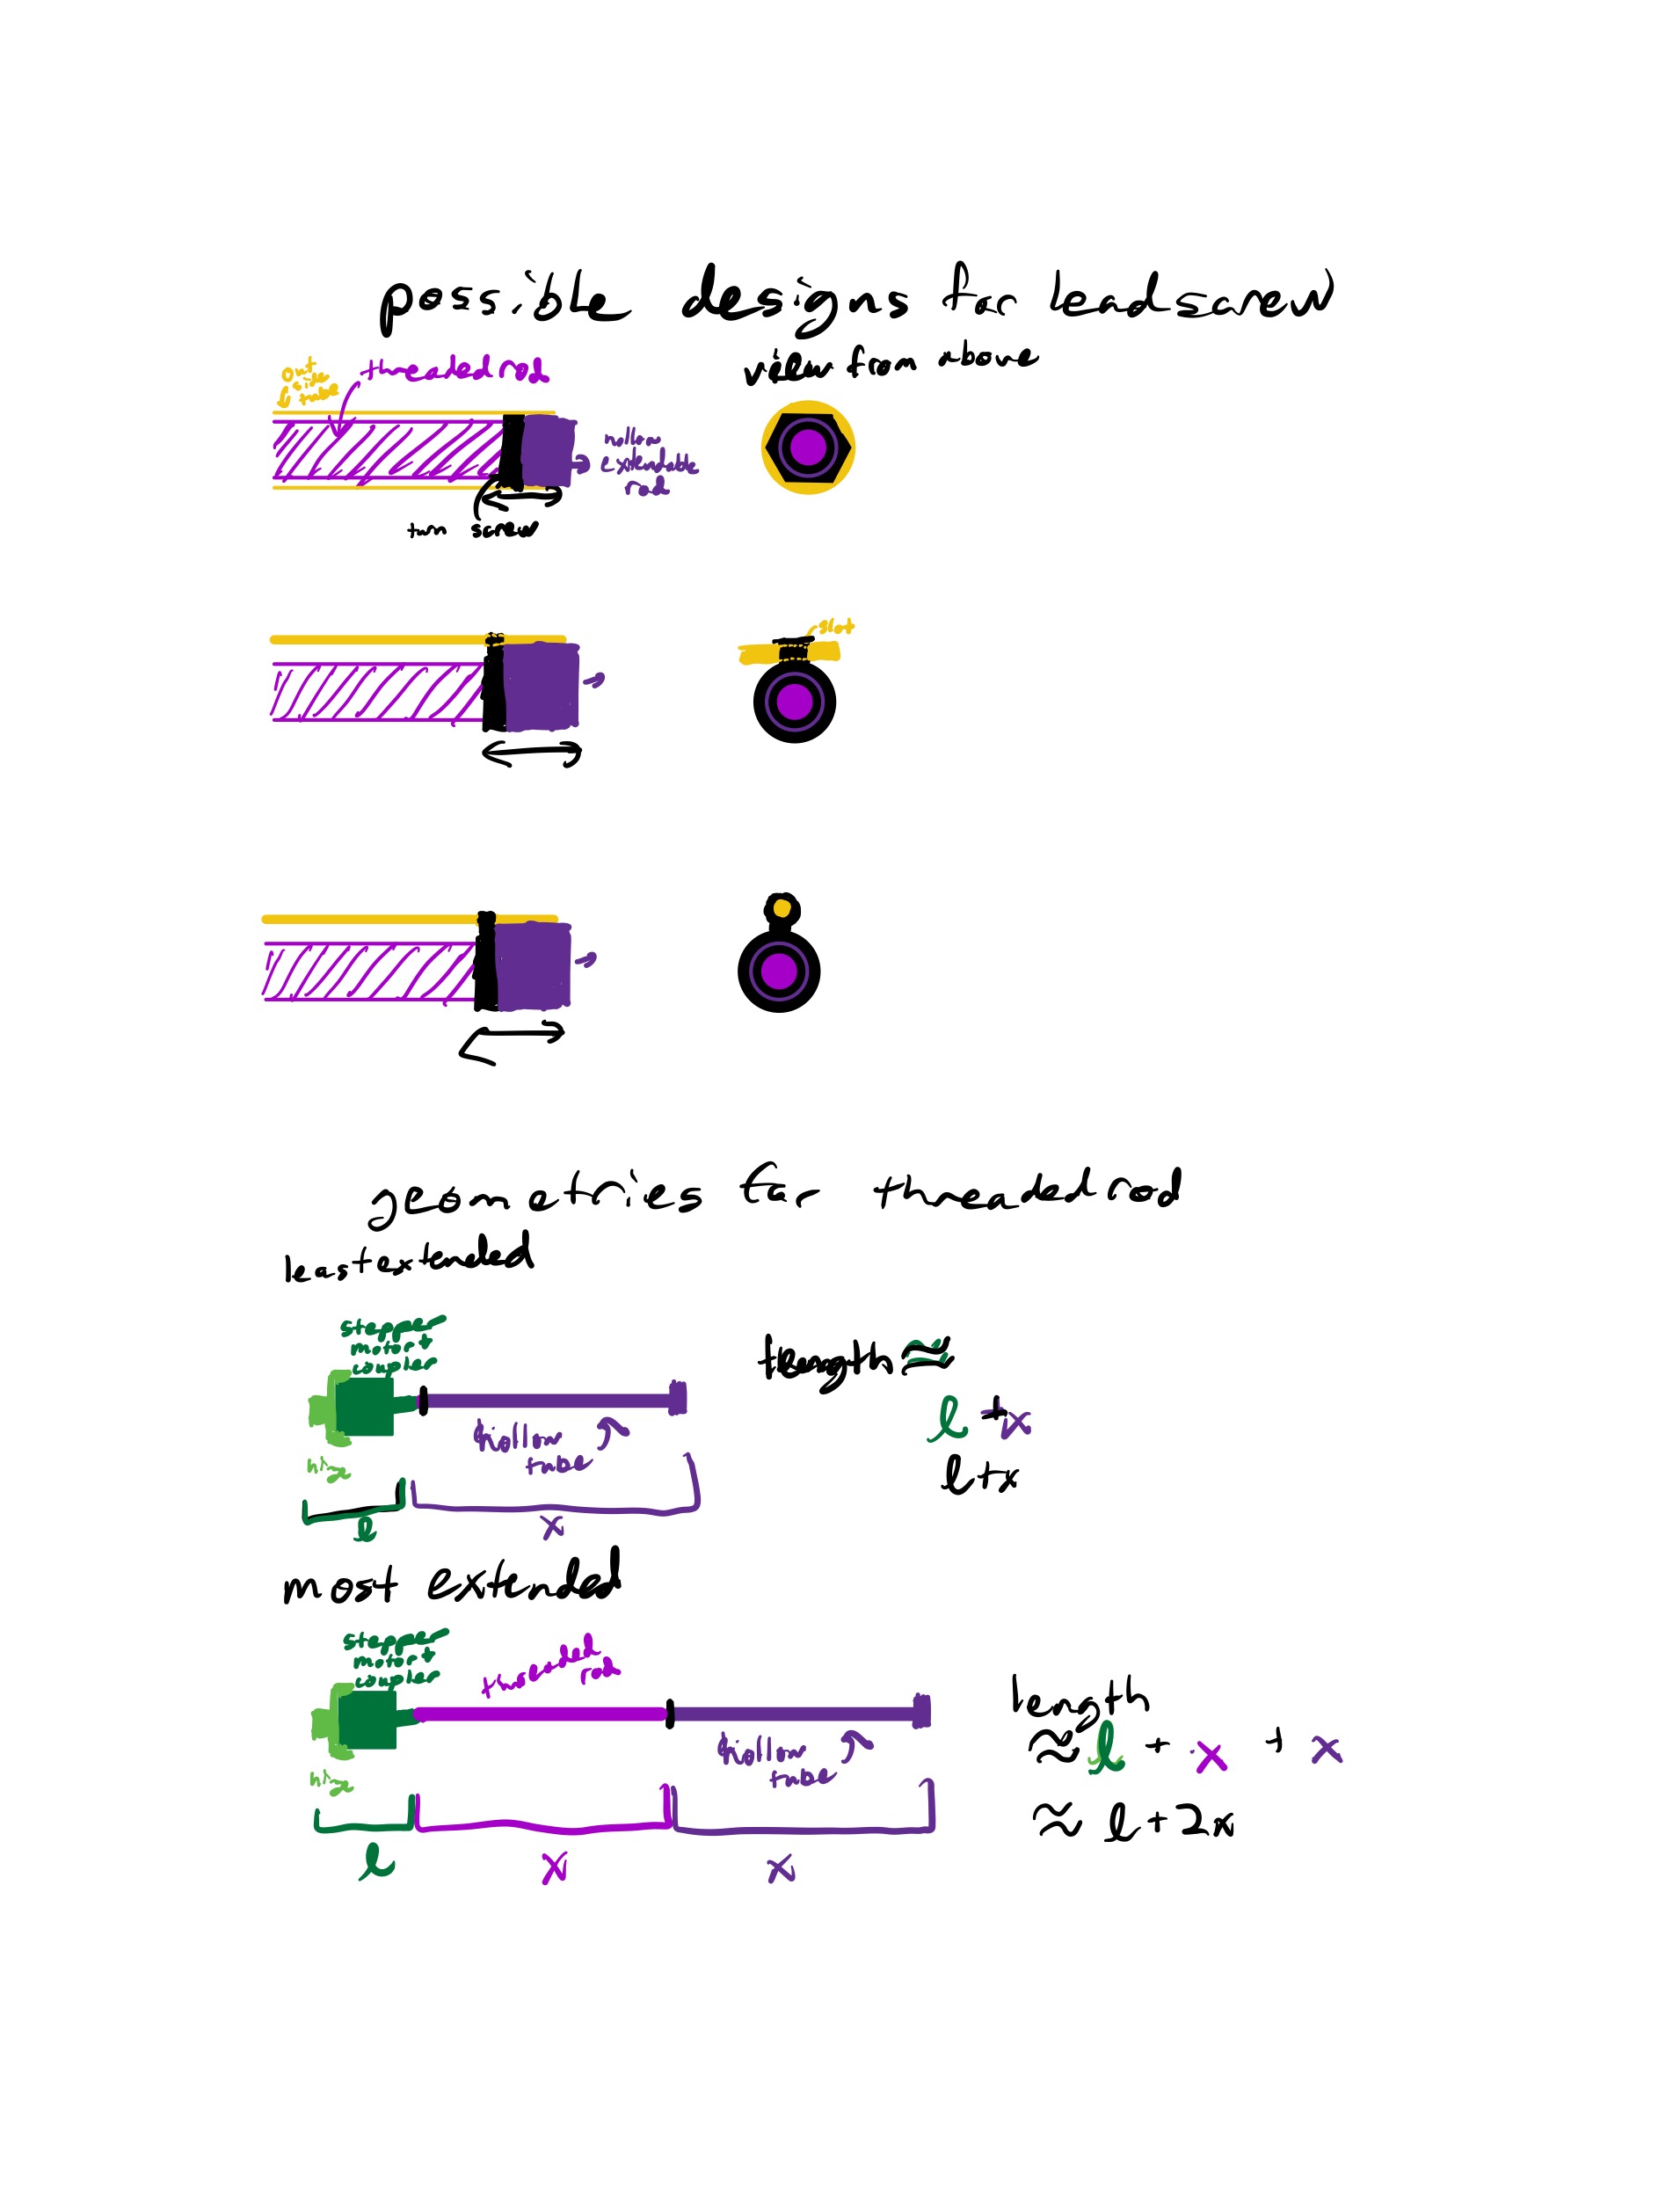 possible designs for leadscrew
view from above
out
side
tube
threaded rod
hollow
extendable
rod
turn screw
slot
geometries for threaded rod
least extended
stepper
motor +
coupler
hollow
tube
length ≈
l + x
l + x
l
x
most extended
stepper
motor +
coupler
threaded
rod
hollow
tube
length
≈ l + x + x
≈ l + 2x
l
x
x